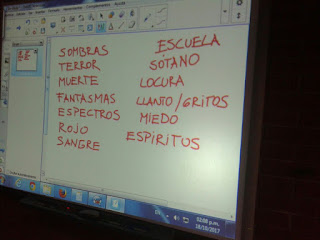 SOMBRAS
TERROR
MUERTE
FANTASMAS
ESPECTROS
ROJO
SANGRE
ESCUELA
SÓTANO
LOCURA
LLANTO/GRITOS
MIEDO
ESPÍRITUS
02:08 p.m.
18/10/2017